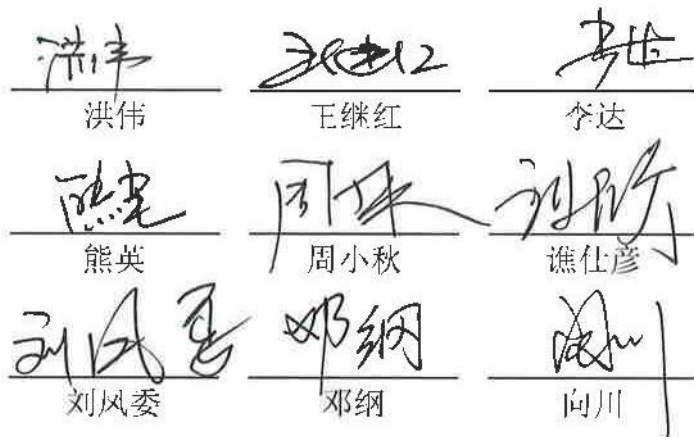 洪伟 王继红 李达
洪伟 王继红 李达
熊英 周小秋 谯仕彦
熊英 周小秋 谯仕彦
刘凤委 邓纲 向川
刘风委 邓纲 向川